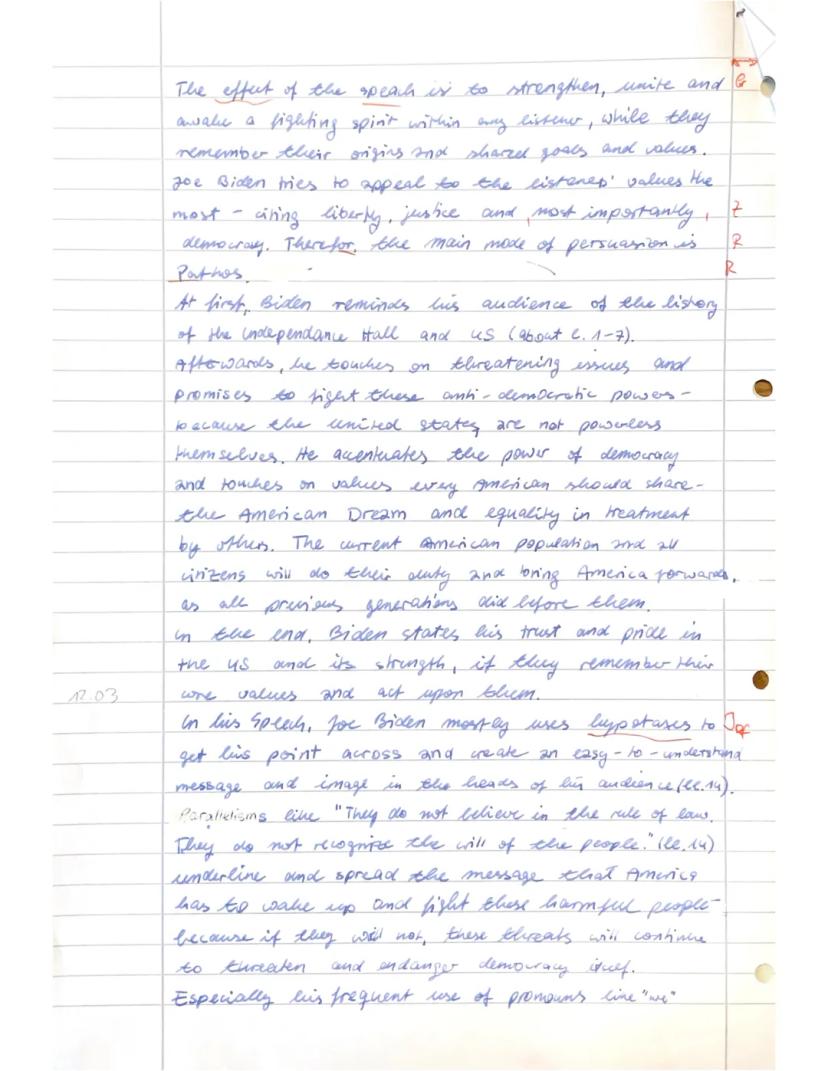 The effect of the speach is to strengthen, unite and G
awake a fighting spirit within any listener, while they
remember their origins and shared goals and values.
Joe Biden tries to appeal to the listeners' values the
most - citing liberty, justice and, most importantly, Z
democracy. Therefor, the main mode of persuassion is R
Pathos. R
At first, Biden reminds his audience of the history
of the Independance Hall and US (about l. 1-7).
Afterwards, he touches on threatening issues and
promises to fight these anti-democratic powers -
because the united states are not powerless
themselves. He accentuates the power of democracy
and touches on values every American should share -
the American Dream and equality in treatment
by others. The current American population and all
citizens will do their duty and bring America forwards,
as all previous generations did before them.
In the end, Biden states his trust and pride in
the US and its strength, if they remember their
12.03 core values and act upon them.
In his Speech, Joe Biden mostly uses hypotaxes to
get his point across and create an easy-to-understand
message and image in the heads of his audience (ll. 14).
Parallelisms like "They do not believe in the rule of law.
They do not recognize the will of the people." (ll. 14)
underline and spread the message that America
has to wake up and fight these harmful people -
because if they will not, these threats will continue
to threaten and endanger democracy itself.
Especially his frequent use of pronouns like "we"